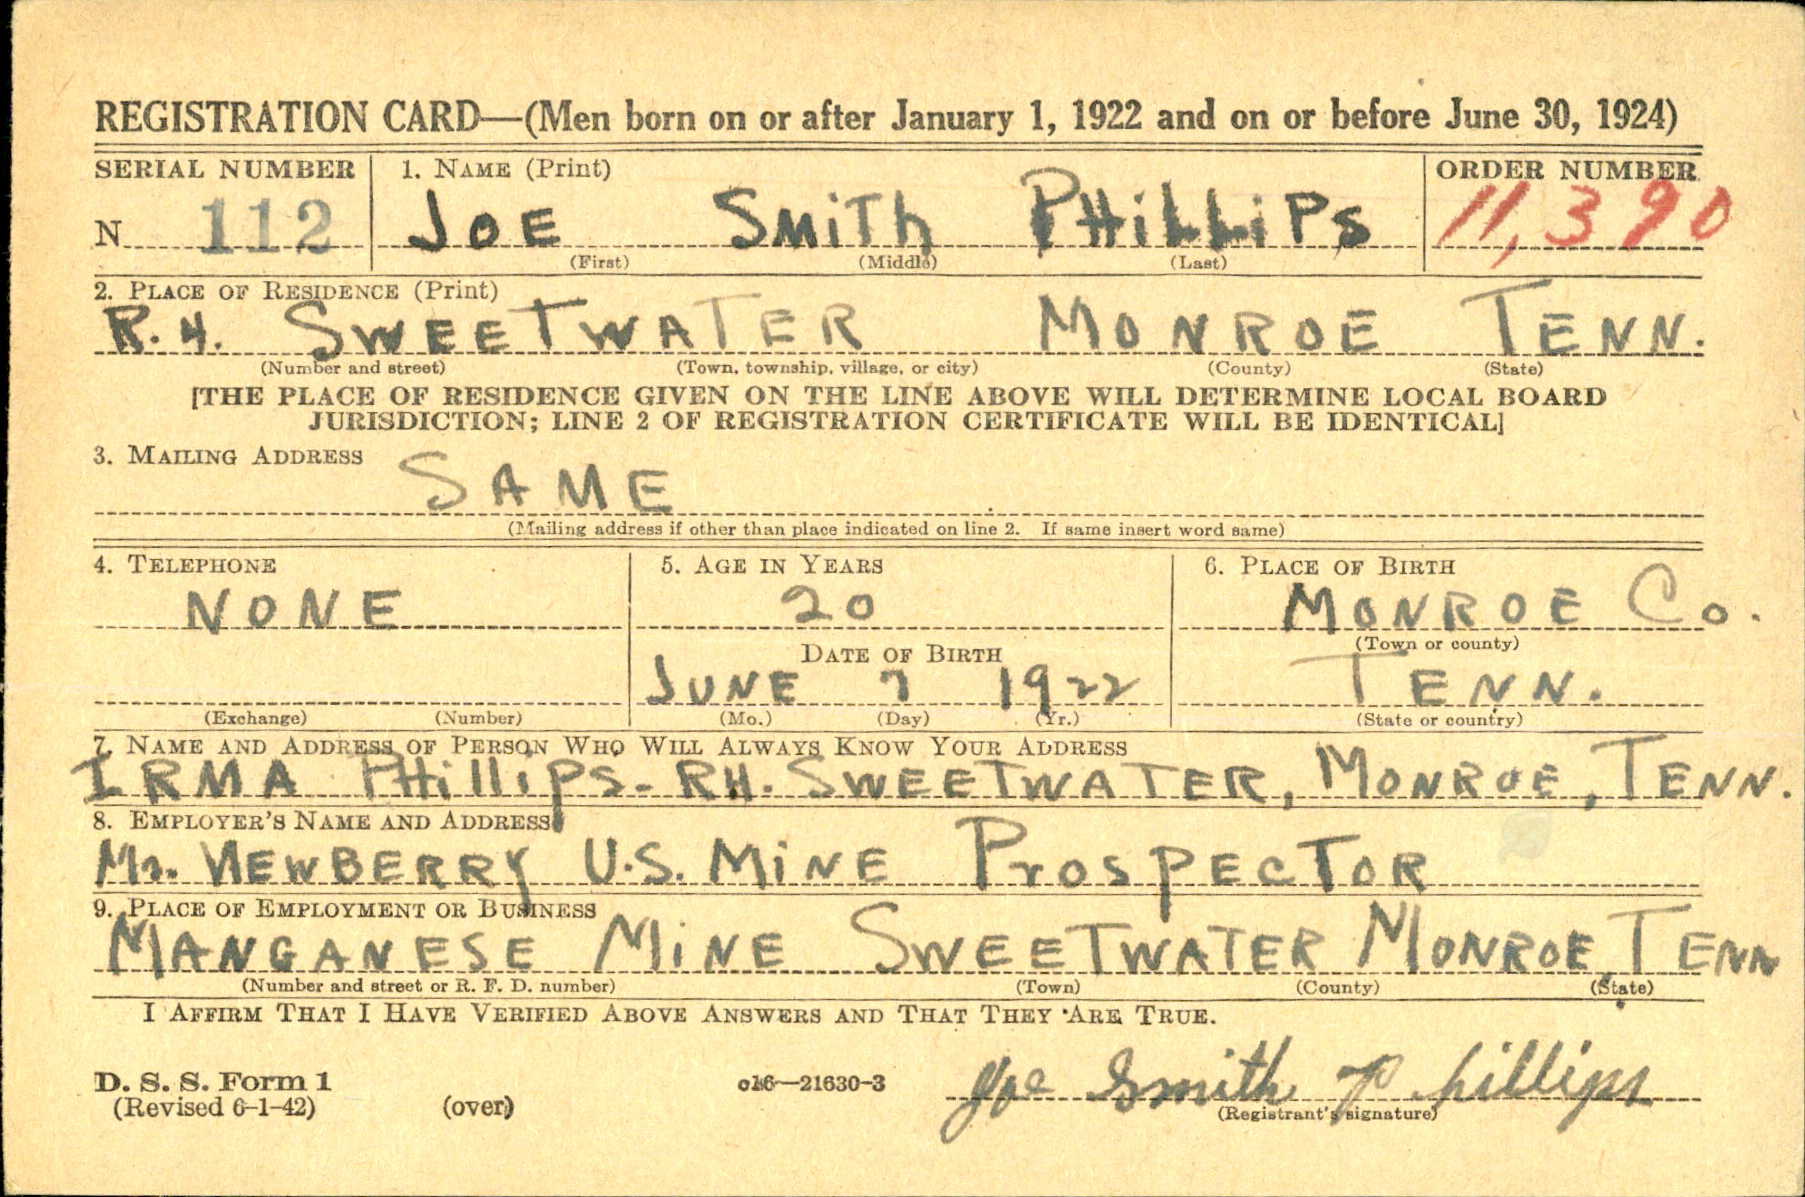 REGISTRATION CARD—(Men born on or after January 1, 1922 and on or before June 30, 1924)
SERIAL NUMBER 1. NAME (Print) ORDER NUMBER
N 112 JOE SMITh PHiLLiPS 11,390
(First) (Middle) (Last)
2. PLACE OF RESIDENCE (Print)
R.4. SWEETWATER MONROE TENN.
(Number and street) (Town, township, village, or city) (County) (State)
[THE PLACE OF RESIDENCE GIVEN ON THE LINE ABOVE WILL DETERMINE LOCAL BOARD
JURISDICTION; LINE 2 OF REGISTRATION CERTIFICATE WILL BE IDENTICAL]
3. MAILING ADDRESS
SAME
(Mailing address if other than place indicated on line 2. If same insert word same)
4. TELEPHONE 5. AGE IN YEARS 6. PLACE OF BIRTH
NONE 20 MONROE Co.
DATE OF BIRTH (Town or county)
JUNE 7 1922 TENN.
(Exchange) (Number) (Mo.) (Day) (Yr.) (State or country)
7. NAME AND ADDRESS OF PERSON WHO WILL ALWAYS KNOW YOUR ADDRESS
IRMA PHillips- R4. SWEETWATER, MONROE, TENN.
8. EMPLOYER'S NAME AND ADDRESS
Mr. NEWBERRY U.S. MiNE ProsPEcTOR
9. PLACE OF EMPLOYMENT OR BUSINESS
MANGANESE MiNE SWEETWATER MONROE, TENN
(Number and street or R. F. D. number) (Town) (County) (State)
I AFFIRM THAT I HAVE VERIFIED ABOVE ANSWERS AND THAT THEY ARE TRUE.
D. S. S. Form 1 c16—21630-3 Joe Smith Phillips
(Revised 6-1-42) (over) (Registrant's signature)